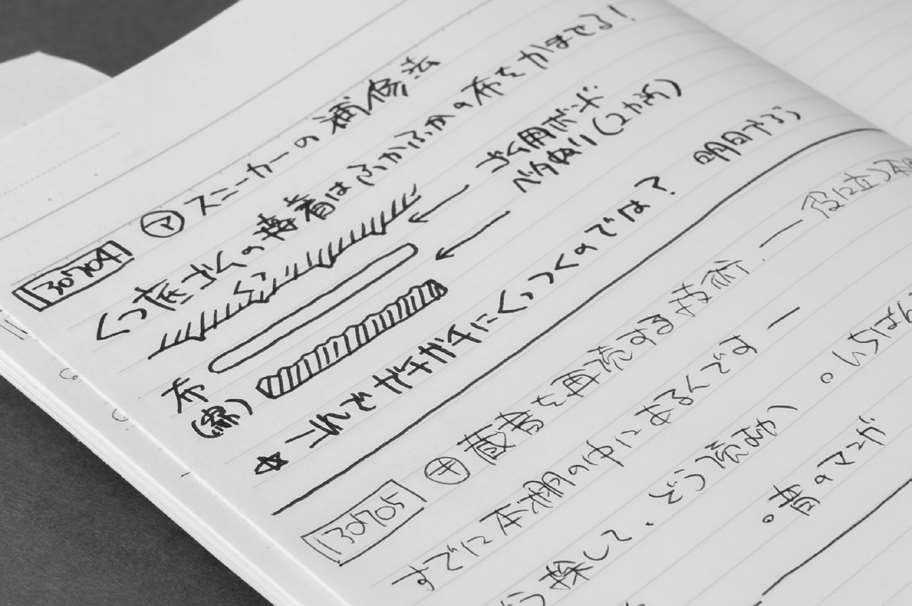 130704 ㋐ スニーカーの補修法
くつ底ゴムの接着はふかふかの布をかませる!
ゴム用ボンド
ベタぬり(2か所)
布
(綿)
☆これでガチガチにくっつくのでは? 明日やろう
130705 ㋖ 蔵書を再読する技術. ― 役に立つ本
すでに本棚の中にあるんです ―
探して、どう読むか。いちばん
昔のマンガ